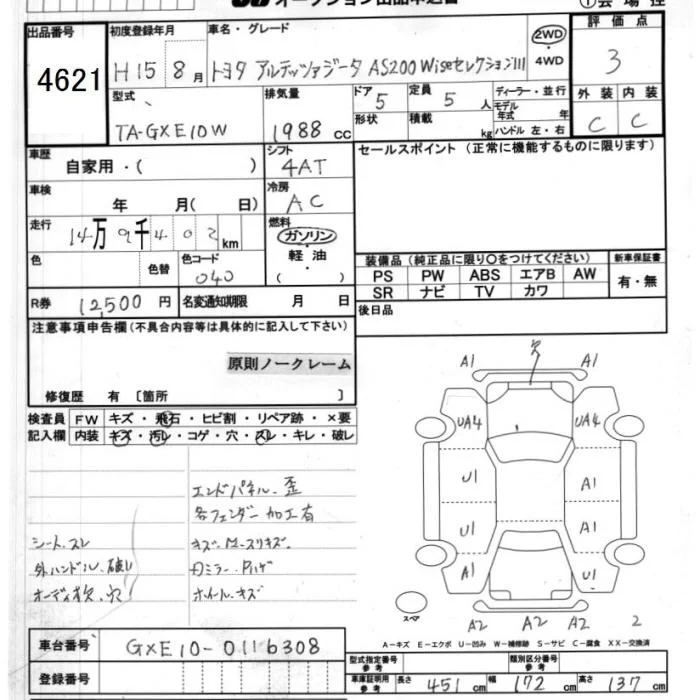 オークション出品申込書
①会場控
出品番号 初度登録年月 車名・グレード 評価点
4621
H15 8月 トヨタ アルテッツァジータ AS200 WiseセレクションIII
2WD・4WD
3
型式 排気量 ドア 定員 ディーラー・並行 外装 内装
5 5人 モデル年式 年
形状 積載 kg ハンドル 左・右
TA-GXE10W 1988 cc
C C
車歴 シフト セールスポイント (正常に機能するものに限ります)
自家用・( ) 4AT
車検 冷房
年 月( 日) AC
走行 燃料
14万9千402km ガソリン・軽油・( )
装備品 (純正品に限り○をつけてください) 新車保証書
色 色替 色コード
040
PS PW ABS エアB AW
有・無
SR ナビ TV カワ
R券 12,500円 名変通知期限 月 日
後日品
注意事項申告欄 (不具合内容等は具体的に記入して下さい)
原則ノークレーム
修復歴 有 [箇所 ]
検査員記入欄
FW キズ・飛石・ヒビ割・リペア跡・×要
内装 キズ・汚レ・コゲ・穴・スレ・キレ・破レ
エンドパネル.歪
各フェンダー加工有
シート.スレ
外ハンドル.破レ
オーディオ欠.穴
ホイール.キズ
A1 欠 A1
UA4 UA4
U1 A1
U1 A1
A1 U1
スペア
A2 A2 A2 2
A-キズ E-エクボ U-凹み W-補修跡 S-サビ C-腐食 XX-交換済
車台番号 GXE10-0116308
登録番号
型式指定番号 参考 類別区分番号 参考
車庫証明用 参考 長さ 451cm 幅 172cm 高さ 137cm